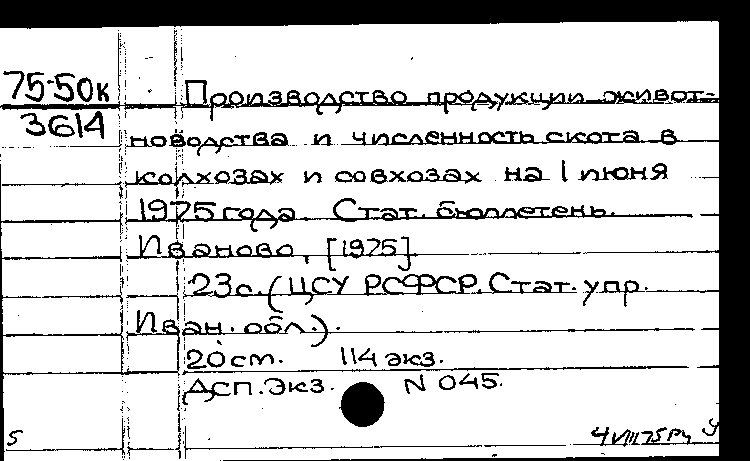 75-50к
3614
Производство продукции живот-
новодства и численность скота в
колхозах и совхозах на 1 июня
1975 года. Стат. бюллетень.
Иваново, [1975].
23с. (ЦСУ РСФСР. Стат. упр.
Иван. обл.).
20 см. 114 экз.
ДСП. Экз. N 045.
5